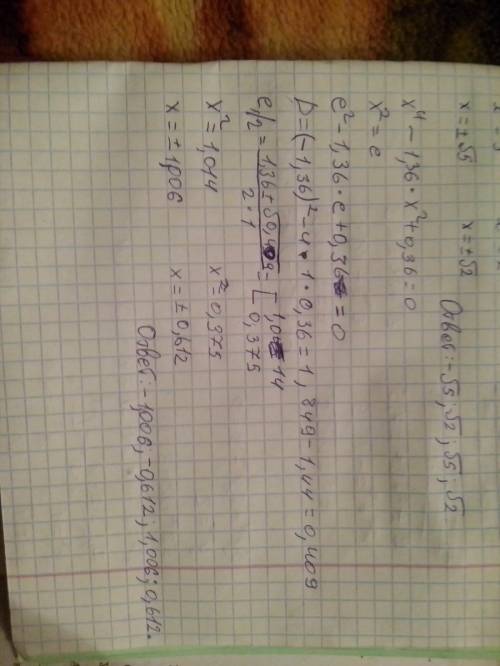 x = ±√5 x = ±√2
Ответ: -√5; √2; √5; √2
x⁴ - 1,36 · x² + 0,36 = 0
x² = e
e² - 1,36 · e + 0,36 = 0
D = (-1,36)² - 4 · 1 · 0,36 = 1,849 - 1,44 = 0,409
e₁/₂ = (1,36 ± √0,409) / (2 · 1) = [ 1,014
0,375
x² = 1,014 x² = 0,375
x = ±1,006 x = ±0,612
Ответ: -1,006; -0,612; 1,006; 0,612.